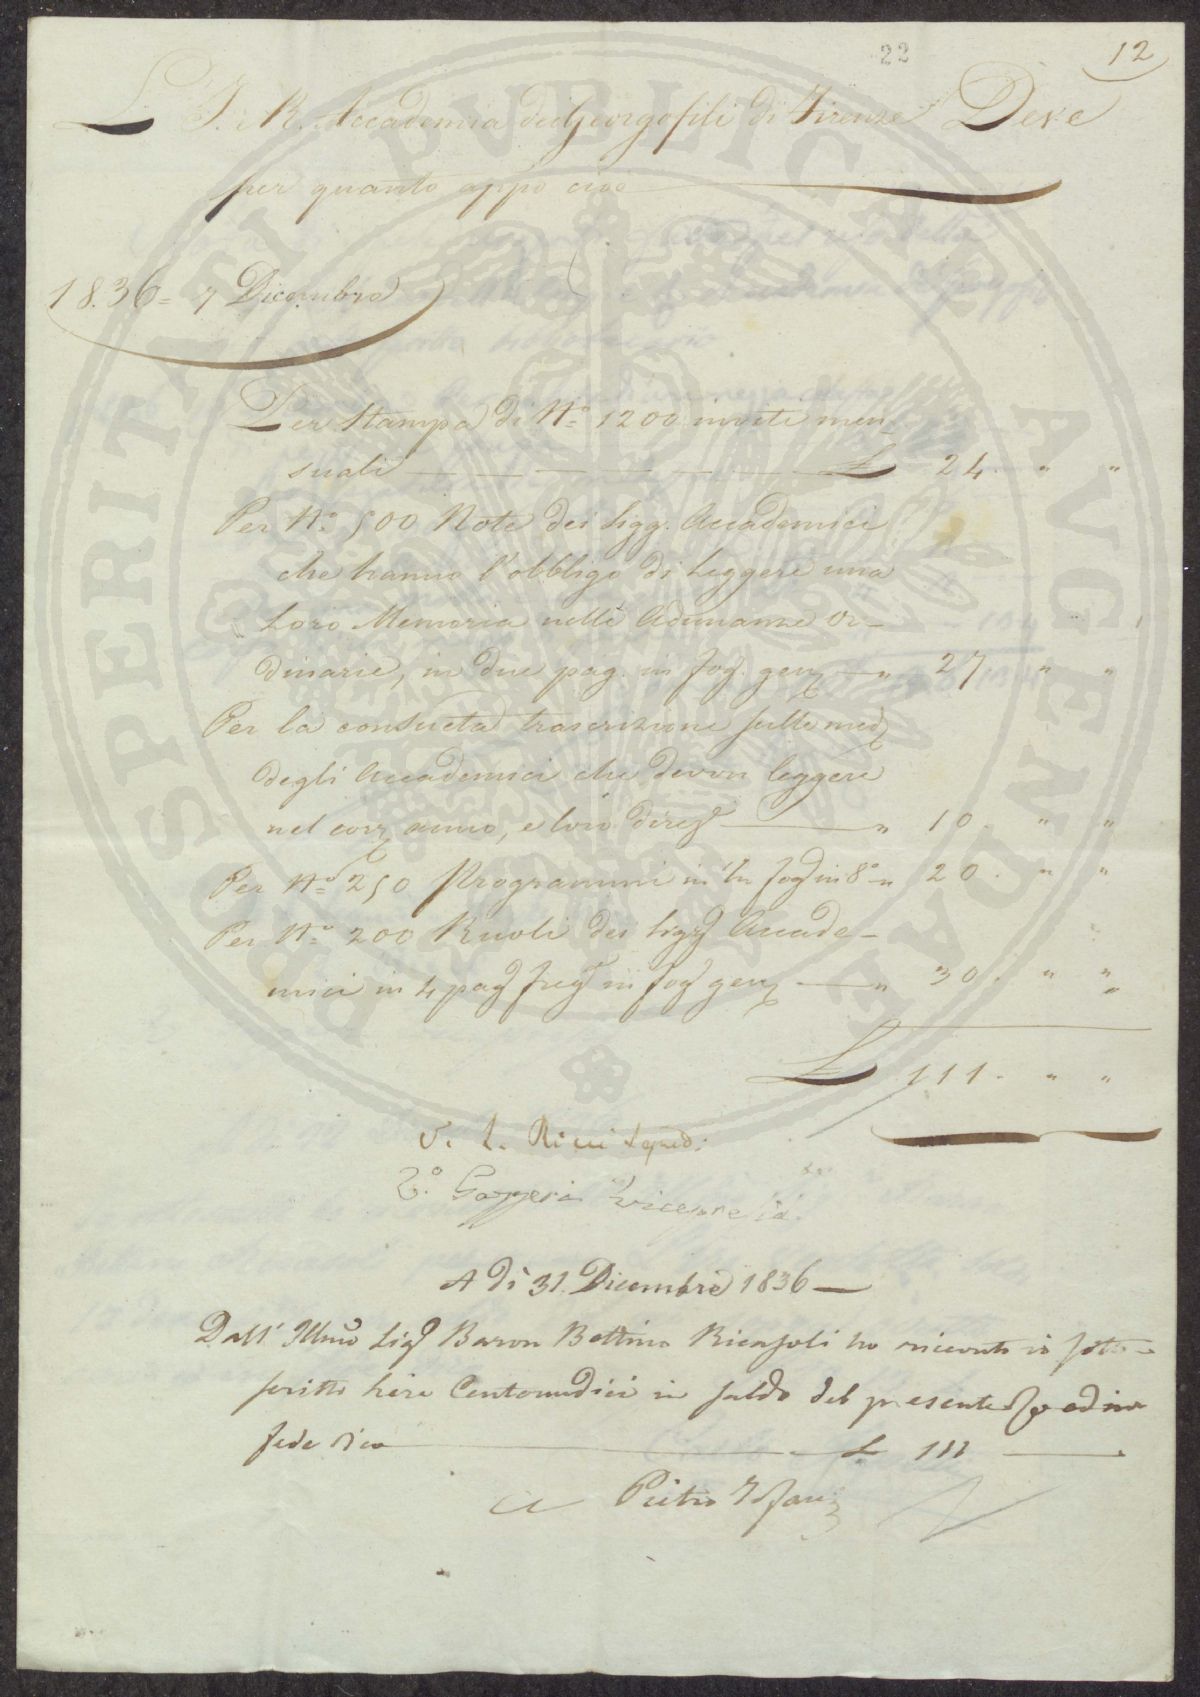 22
12
L I. R. Accademia dei Georgofili di Firenze Deve
per quanto appo cioe
1836 = 7 Dicembre
Per Stampa di N.o 1200 inviti men-
suali £ 24. " "
Per N.o 500 Note dei Sigg. Accademici
che hanno l'obbligo di Leggere una
Loro Memoria nelle Adunanze Or-
dinarie, in due pag. in fog. " 27. " "
Per la consueta trascrizione sulle med
degli Accademici che devon leggere
nel corr anno, e loro " 10. " "
Per N.o 250 Programmi in fog in 8.o " 20. " "
Per N.o 200 Ruoli dei Sigg Accade-
mici in 4 pag in fog " 30. " "
£ 111. " "
V. L. Ricci
V.o Gazzeri Vicepresid.
A dì 31. Dicembre 1836
Dall' Illmo Sig Baron Bettino Ricasoli ho ricevuto io sotto-
scritto Lire Centoundici in saldo del presente ed in
fede dico £ 111
Pietro
PROSPERITATI PVBLICAE AVGENDAE